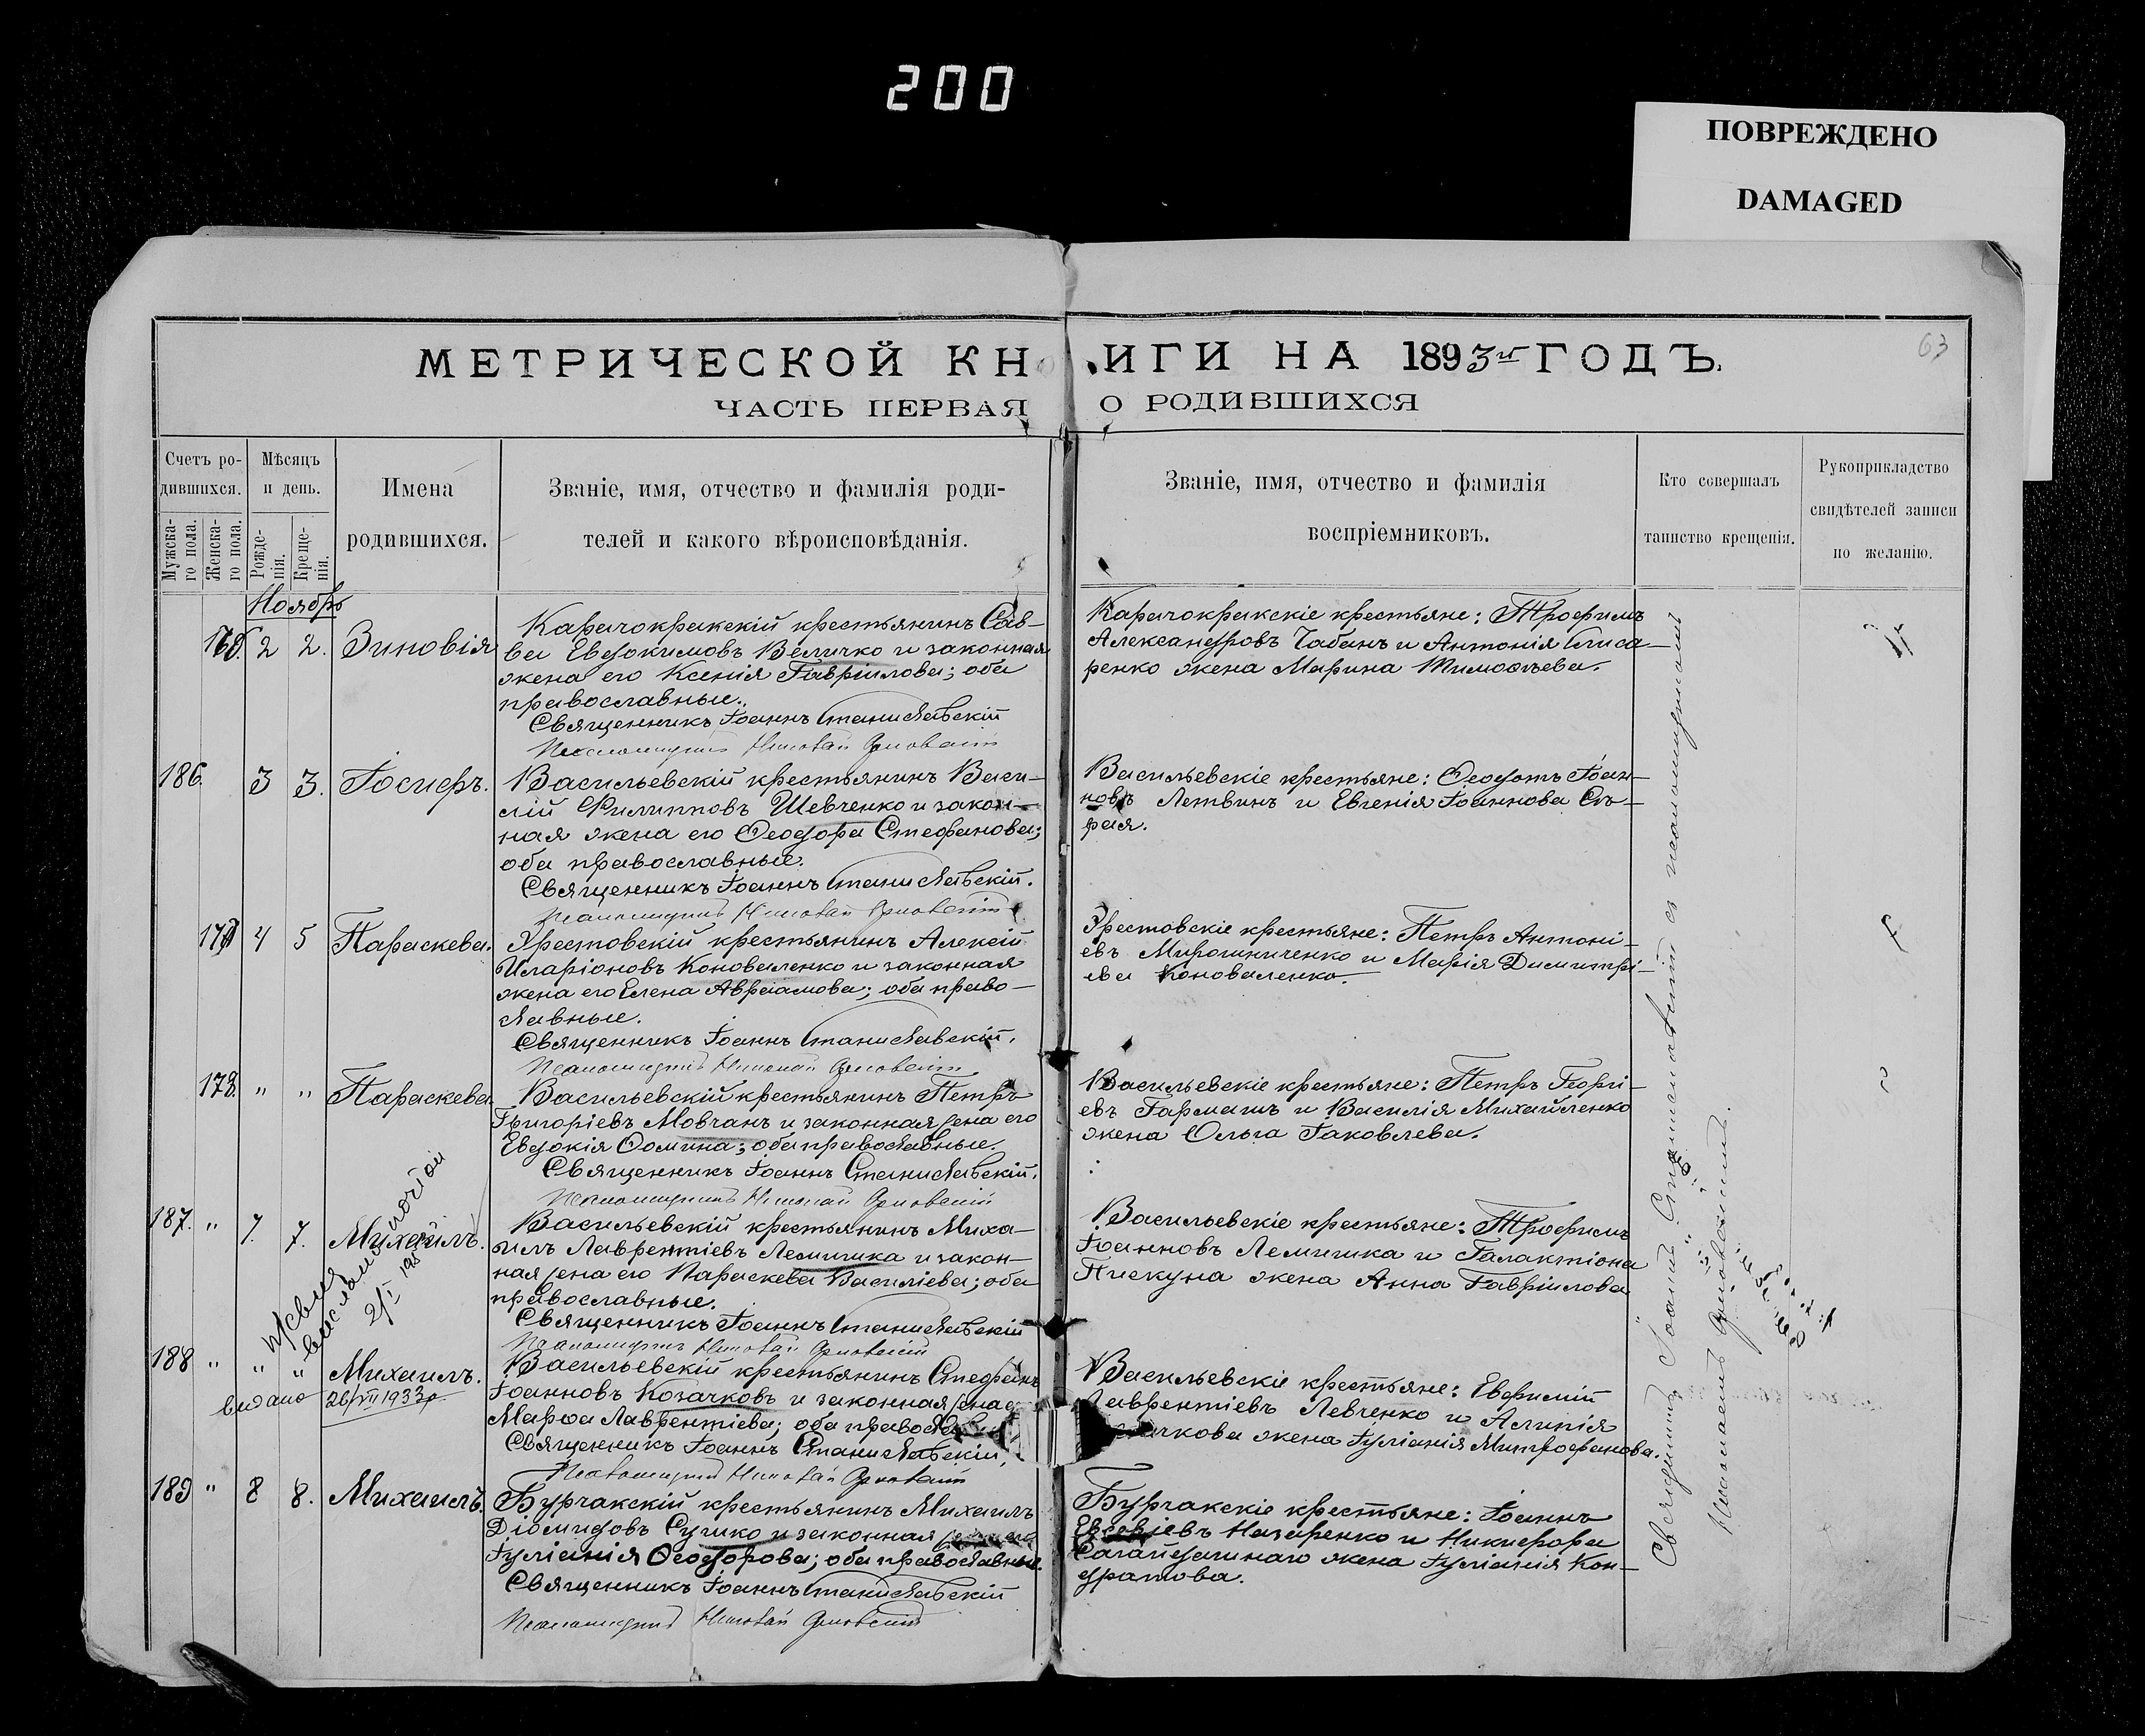 200
ПОВРЕЖДЕНО
DAMAGED
63
МЕТРИЧЕСКОЙ КН ИГИ НА 1893й ГОДЪ.
ЧАСТЬ ПЕРВАЯ О РОДИВШИХСЯ
Счетъ ро-
дившихся.
Мужска-
го пола.
Женска-
го пола.
Мѣсяцъ
и день.
Рожде-
нія.
Креще-
нія.
Имена
родившихся.
Званіе, имя, отчество и фамилія роди-
телей и какого вѣроисповѣданія.
Званіе, имя, отчество и фамилія
воспріемниковъ.
Кто совершалъ
таинство крещенія.
Рукоприкладство
свидѣтелей записи
по желанію.
Ноябрь
2 2. Зиновія
Карачокракскій крестьянинъ Сав-
ва Евдокимовъ Величко и законная
жена его Ксенія Гавріилова; оба
православные.
Священникъ Іоаннъ Станиславскій
Псаломщикъ Николай
Карачокракскіе крестьяне: Трофимъ
Александровъ Чабанъ и Антонія Писа-
ренко жена Марина Тимофѣева.
186. 3 3. Іосифъ.
Васильевскій крестьянинъ Васи-
лій Филипповъ Шевченко и закон-
ная жена его Ѳеодора Стефанова;
оба православные.
Священникъ Іоаннъ Станиславскій.
Псаломщикъ Николай
Васильевскіе крестьяне: Ѳеодотъ Іоан-
новъ Летвинъ и Евгенія Іоаннова Сѣ-
рая.
4 5 Параскева.
Эрестовскій крестьянинъ Алексій
Иларіоновъ Коноваленко и законная
жена его Елена Авраамова; оба право-
славные.
Священникъ Іоаннъ Станиславскій.
Псаломщикъ Николай
Эрестовскіе крестьяне: Петръ Антоні-
евъ Мирошниченко и Марія Димитрі-
ева Коноваленко.
178. " " Параскева
Васильевскій крестьянинъ Петръ
Григоріевъ Мовчанъ и законная жена его
Евдокія Ѳомина; оба православные.
Священникъ Іоаннъ Станиславскій.
Псаломщикъ Николай
Васильевскіе крестьяне: Петръ Георгі-
евъ Гармашъ и Василія Михайленко
жена Ольга Іаковлева.
187. " 7. 7. Михаилъ.
Васильевскій крестьянинъ Миха-
илъ Лаврентіевъ Лемишка и закон-
ная жена его Параскева Василіева; оба
православные.
Священникъ Іоаннъ Станиславскій
Псаломщикъ Николай
Васильевскіе крестьяне: Трофимъ
Іоанновъ Лемишка и Галактіона
Пискуна жена Анна Гавріилова
188 " " " Михаилъ.
видано 26/VII 1933р
Васильевскій крестьянинъ Стефанъ
Іоанновъ Козачковъ и законная жена
Марѳа Лаврентіева; оба
Священникъ Іоаннъ Станиславскій,
Псаломщикъ Николай
Васильевскіе крестьяне: Евфимій
Лаврентіевъ Левченко и Алипія
жена Іуліанія Митрофанова.
189 " 8 8. Михаилъ.
Бурчакскій крестьянинъ Михаилъ
Діомидовъ Сушко и законная жена его
Іуліанія Ѳеодорова; оба православные.
Священникъ Іоаннъ Станиславскій
Псаломщикъ Николай
Бурчакскіе крестьяне: Іоаннъ
Евсевіевъ Назаренко и Никифора
Сагайдашнаго жена Іуліанія Кон-
дратова.
Священникъ Іоаннъ Станиславскій съ псаломщикомъ
Николаемъ